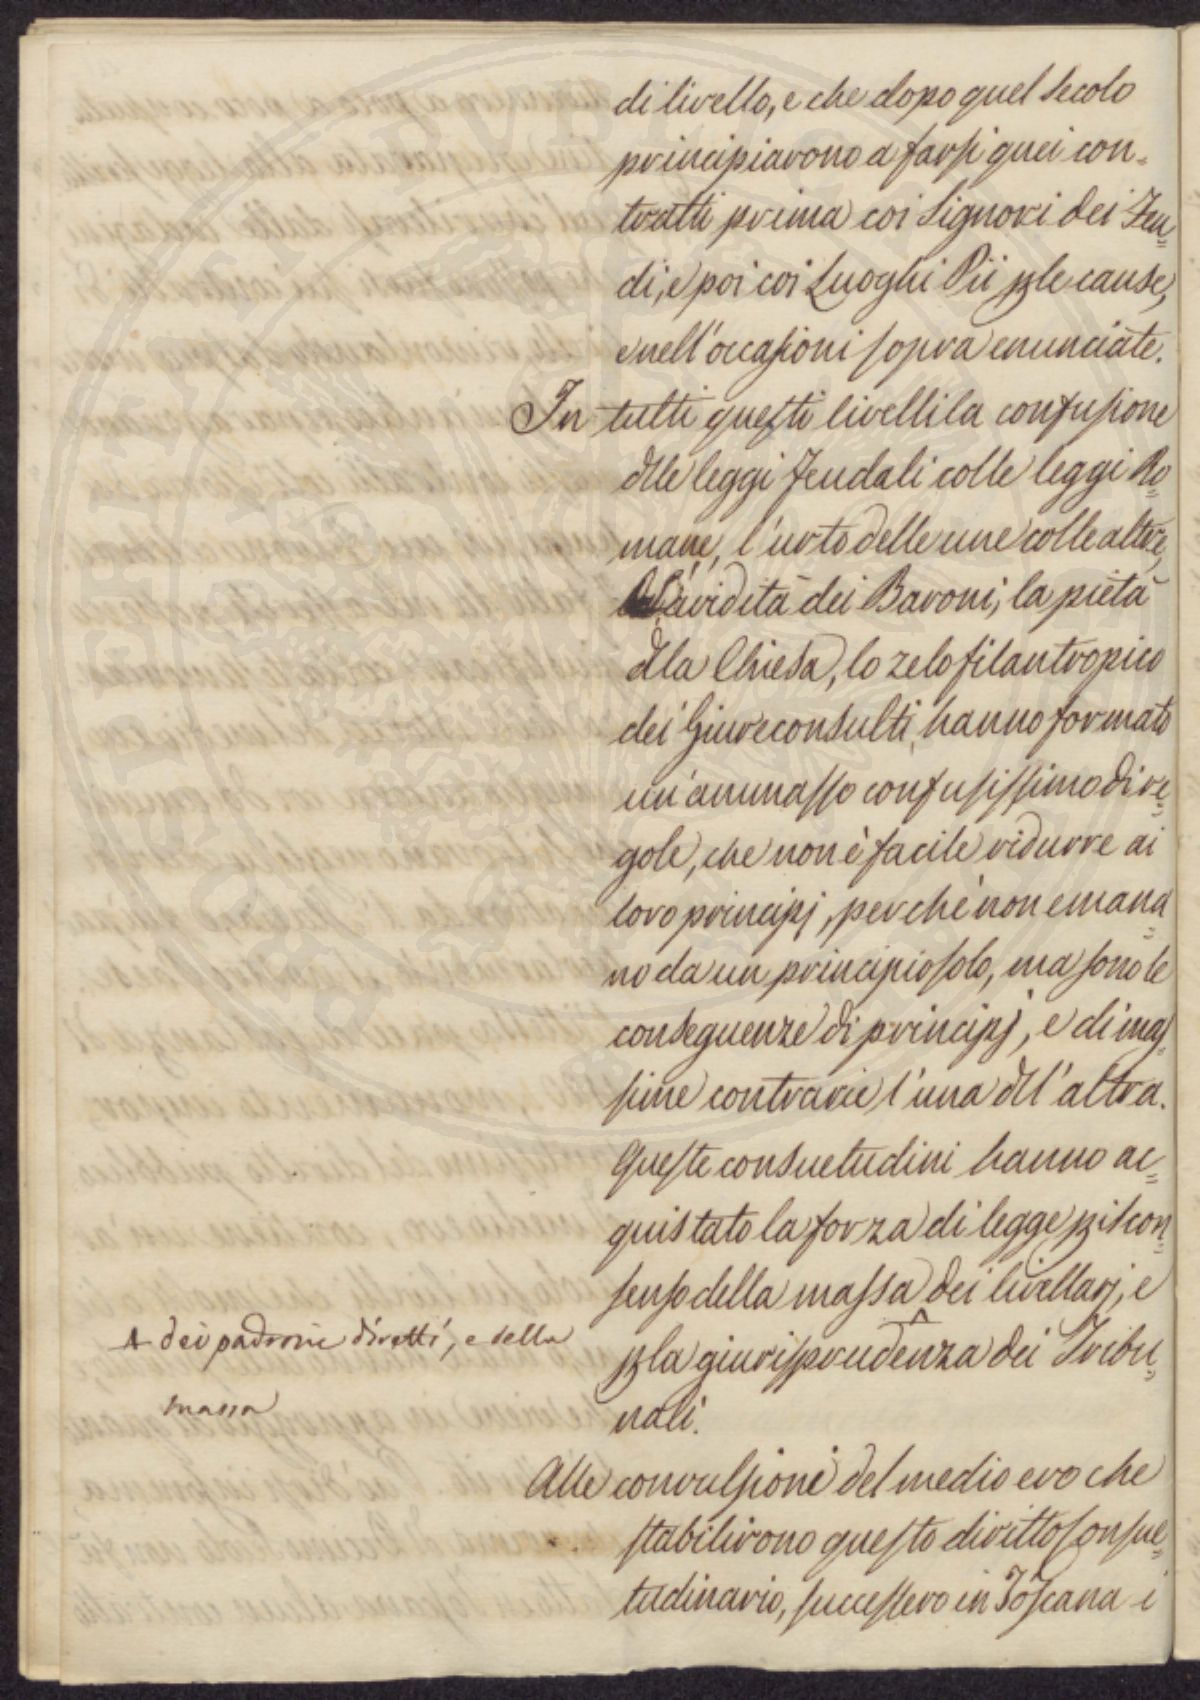 di livello, e che dopo quel Secolo
principiarono a farsi quei con=
tratti prima coi Signori dei Feu=
di, e poi coi Luoghi Pii ple cause,
e nell'occasioni sopra enunciate.
In tutti questi livelli la confusione
dlle leggi Feudali colle leggi Ro=
mane, l'urto delle une colle altre,
l'avidità dei Baroni, la pietà
dlla Chiesa, lo zelo filantropico
dei Giureconsulti, hanno formato
un'ammasso confusissimo di re=
gole, che non è facile ridurre ai
loro principj, perchè non emana=
no da un principio solo, ma sono le
conseguenze di principj, e di mas=
sime contrarie l'una dll'altra.
Queste consuetudini hanno ac=
quistato la forza di legge pil con=
senso della massa ^ dei livellarj, e
^ dei padroni diretti, e della
massa
pla giurisprudenza dei Tribu=
nali.
Alle convulsioni del medio evo che
stabilirono questo diritto Consue=
tudinario, successero in Toscana i